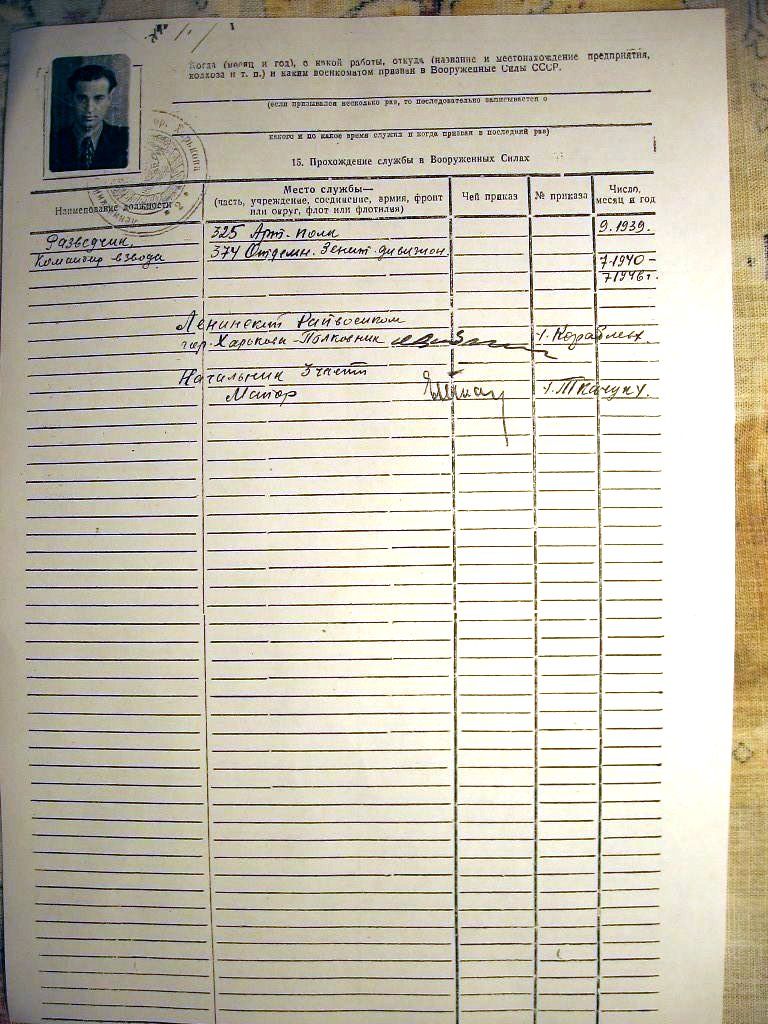 Когда (месяц и год), с какой работы, откуда (название и местонахождение предприятия,
колхоза и т. п.) и каким военкоматом призван в Вооруженные Силы СССР.
(если призывался несколько раз, то последовательно записывается с
какого и по какое время служил и когда призван в последний раз)
15. Прохождение службы в Вооруженных Силах
Наименование должности
Место службы—
(часть, учреждение, соединение, армия, фронт
или округ, флот или флотилия)
Чей приказ
№ приказа
Число,
месяц и год
Разведчик. 325 Арт. полк 9.1939.
Командир взвода 374 Отдельн. Зенит. дивизион. 7-1940-
7 1946 г.
Ленинский Райвоенком
гор. Харькова - Полковник
Начальник 3 части
Майор /. Ткачук /.
гор. Харькова